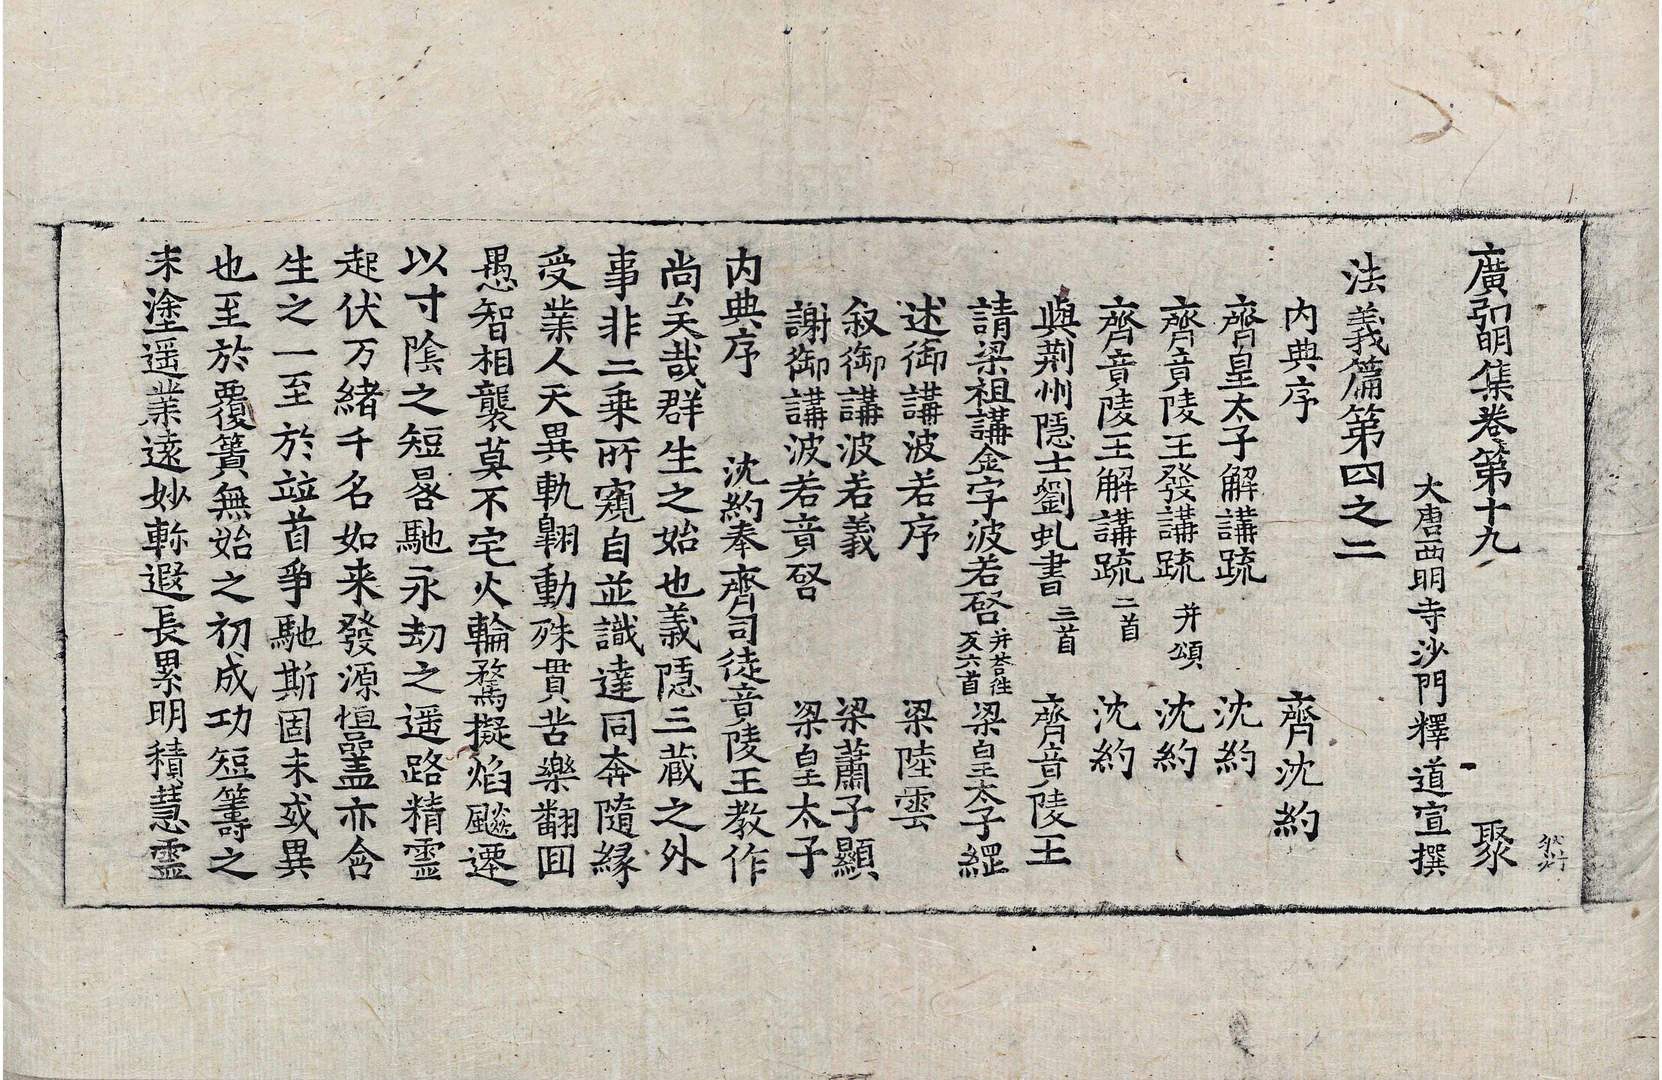 廣弘明集卷第十九　聚
大唐西明寺沙門釋道宣撰
法義篇第四之二
內典序　齊沈約
齊皇太子解講䟽　沈約
齊竟陵王發講䟽 并頌　沈約
齊竟陵王解講䟽 二首　沈約
與荆州隱士劉虬書 三首　齊竟陵王
請梁祖講金字波若啓 并荅往反六首　梁皇太子綱
述御講波若序　梁陸雲
叙御講波若義　梁蕭子顯
謝御講波若竟啓　梁皇太子
內典序　沈約奉齊司徒竟陵王教作
尚矣哉群生之始也義隱三藏之外
事非二乗所窺自並識達同奔隨縁
受業人天異軌翺動殊貫苦樂翻回
愚智相襲莫不宅火輪騖擬焰飈遷
以寸隂之短晷馳永劫之遥路精靈
起伏万緒千名如来發源恒品盖亦含
生之一至於竝首爭馳斯固未或異
也至於覆簣無始之初成功短籌之
末塗遥業遠妙軫遐長累明積慧靈